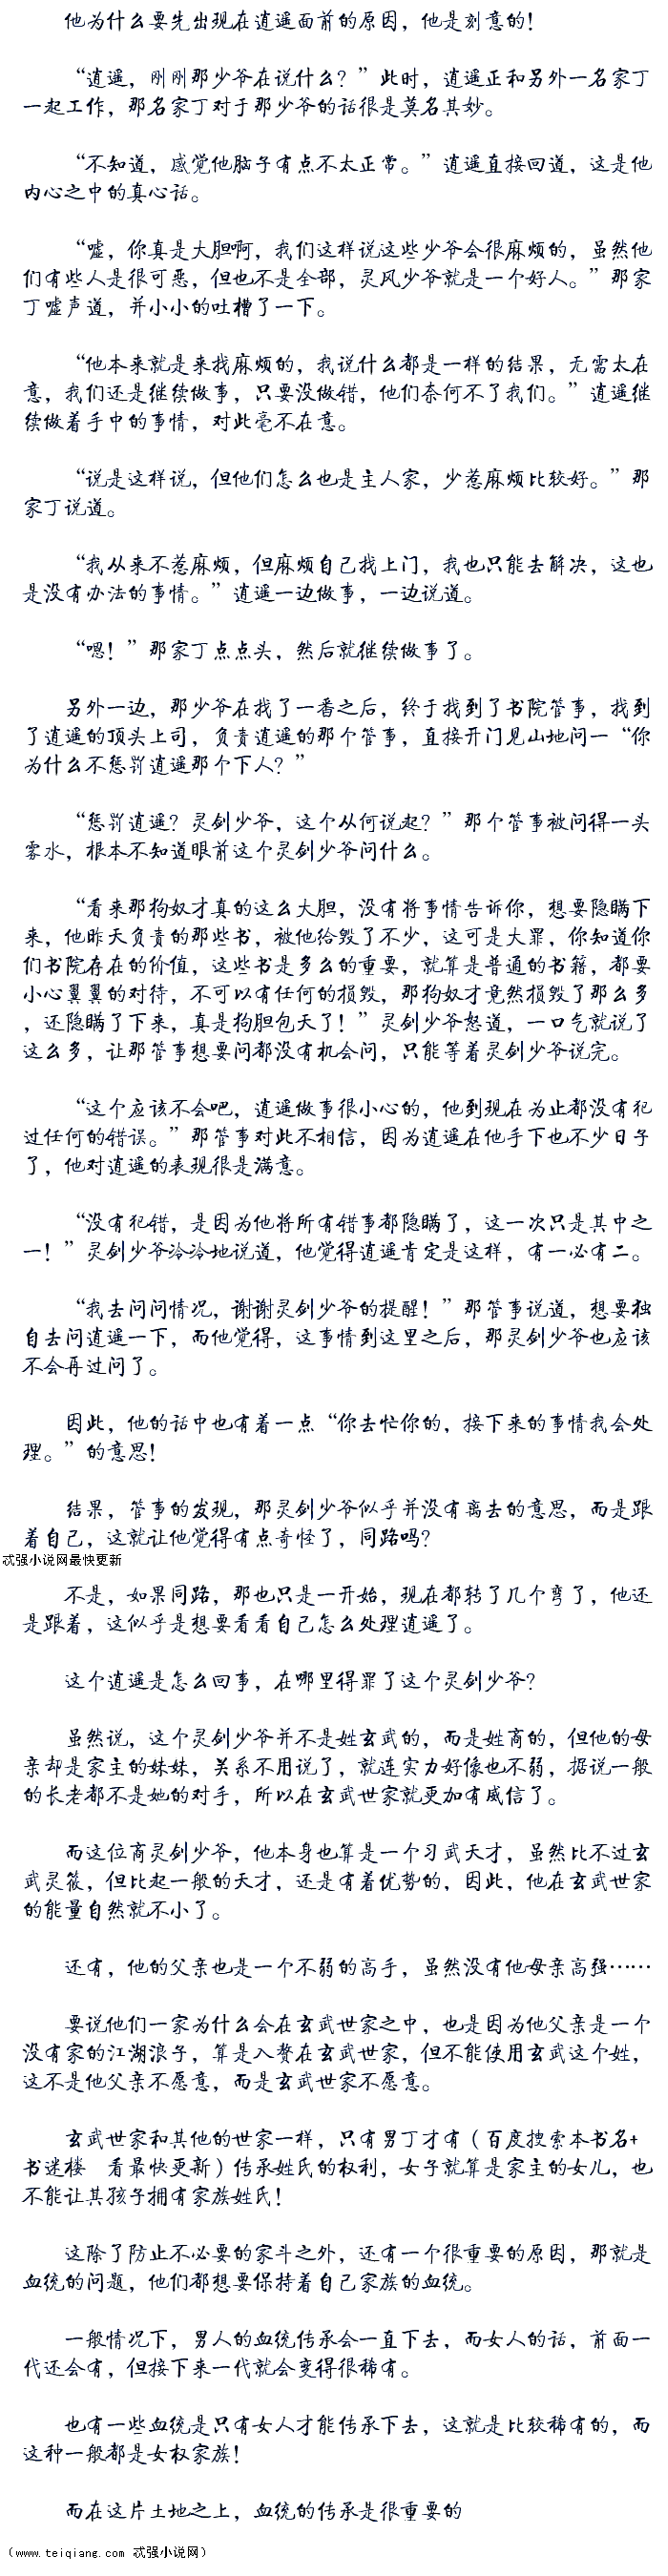 他为什么要先出现在逍遥面前的原因，他是刻意的！
“逍遥，刚刚那少爷在说什么？”此时，逍遥正和另外一名家丁
一起工作，那名家丁对于那少爷的话很是莫名其妙。
“不知道，感觉他脑子有点不太正常。”逍遥直接回道，这是他
内心之中的真心话。
“嘘，你真是大胆啊，我们这样说这些少爷会很麻烦的，虽然他
们有些人是很可恶，但也不是全部，灵风少爷就是一个好人。”那家
丁嘘声道，并小小的吐槽了一下。
“他本来就是来找麻烦的，我说什么都是一样的结果，无需太在
意，我们还是继续做事，只要没做错，他们奈何不了我们。”逍遥继
续做着手中的事情，对此毫不在意。
“说是这样说，但他们怎么也是主人家，少惹麻烦比较好。”那
家丁说道。
“我从来不惹麻烦，但麻烦自己找上门，我也只能去解决，这也
是没有办法的事情。”逍遥一边做事，一边说道。
“嗯！”那家丁点点头，然后就继续做事了。
另外一边，那少爷在找了一番之后，终于找到了书院管事，找到
了逍遥的顶头上司，负责逍遥的那个管事，直接开门见山地问一“你
为什么不惩罚逍遥那个下人？”
“惩罚逍遥？灵剑少爷，这个从何说起？”那个管事被问得一头
雾水，根本不知道眼前这个灵剑少爷问什么。
“看来那狗奴才真的这么大胆，没有将事情告诉你，想要隐瞒下
来，他昨天负责的那些书，被他给毁了不少，这可是大罪，你知道你
们书院存在的价值，这些书是多么的重要，就算是普通的书籍，都要
小心翼翼的对待，不可以有任何的损毁，那狗奴才竟然损毁了那么多
，还隐瞒了下来，真是狗胆包天了！”灵剑少爷怒道，一口气就说了
这么多，让那管事想要问都没有机会问，只能等着灵剑少爷说完。
“这个应该不会吧，逍遥做事很小心的，他到现在为止都没有犯
过任何的错误。”那管事对此不相信，因为逍遥在他手下也不少日子
了，他对逍遥的表现很是满意。
“没有犯错，是因为他将所有错事都隐瞒了，这一次只是其中之
一！”灵剑少爷冷冷地说道，他觉得逍遥肯定是这样，有一必有二。
“我去问问情况，谢谢灵剑少爷的提醒！”那管事说道，想要独
自去问逍遥一下，而他觉得，这事情到这里之后，那灵剑少爷也应该
不会再过问了。
因此，他的话中也有着一点“你去忙你的，接下来的事情我会处
理。”的意思！
结果，管事的发现，那灵剑少爷似乎并没有离去的意思，而是跟
着自己，这就让他觉得有点奇怪了，同路吗？
忒强小说网最快更新
不是，如果同路，那也只是一开始，现在都转了几个弯了，他还
是跟着，这似乎是想要看看自己怎么处理逍遥了。
这个逍遥是怎么回事，在哪里得罪了这个灵剑少爷？
虽然说，这个灵剑少爷并不是姓玄武的，而是姓商的，但他的母
亲却是家主的妹妹，关系不用说了，就连实力好像也不弱，据说一般
的长老都不是她的对手，所以在玄武世家就更加有威信了。
而这位商灵剑少爷，他本身也算是一个习武天才，虽然比不过玄
武灵筱，但比起一般的天才，还是有着优势的，因此，他在玄武世家
的能量自然就不小了。
还有，他的父亲也是一个不弱的高手，虽然没有他母亲高强……
要说他们一家为什么会在玄武世家之中，也是因为他父亲是一个
没有家的江湖浪子，算是入赘在玄武世家，但不能使用玄武这个姓，
这不是他父亲不愿意，而是玄武世家不愿意。
玄武世家和其他的世家一样，只有男丁才有（百度搜索本书名+
书迷楼　看最快更新）传承姓氏的权利，女子就算是家主的女儿，也
不能让其孩子拥有家族姓氏！
这除了防止不必要的家斗之外，还有一个很重要的原因，那就是
血统的问题，他们都想要保持着自己家族的血统。
一般情况下，男人的血统传承会一直下去，而女人的话，前面一
代还会有，但接下来一代就会变得很稀有。
也有一些血统是只有女人才能传承下去，这就是比较稀有的，而
这种一般都是女权家族！
而在这片土地之上，血统的传承是很重要的
（www.teiqiang.com 忒强小说网）